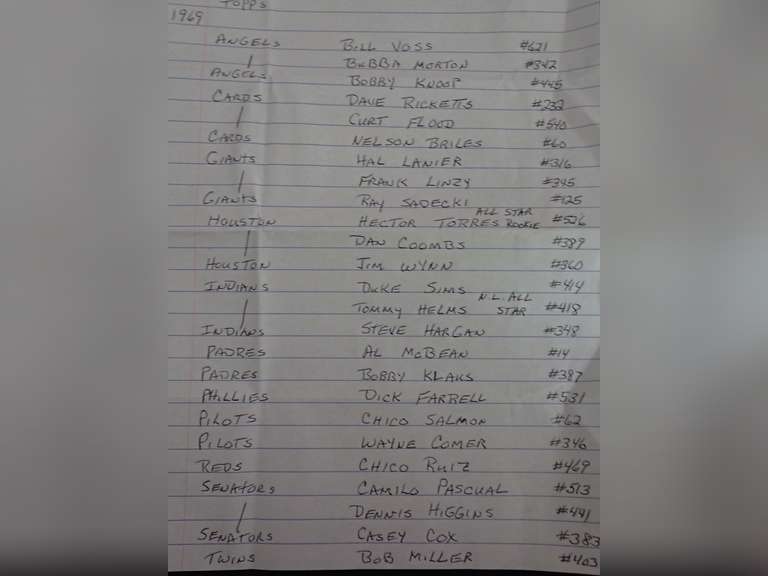 TOPPS
1969
ANGELS BILL VOSS #621
BUBBA MORTON #342
ANGELS BOBBY KNOOP #445
CARDS DAVE RICKETTS #232
CURT FLOOD #540
CARDS NELSON BRILES #60
GIANTS HAL LANIER #316
FRANK LINZY #345
GIANTS RAY SADECKI #125
HOUSTON HECTOR TORRES ALL STAR ROOKIE #526
DAN COOMBS #389
HOUSTON JIM WYNN #360
INDIANS DUKE SIMS #414
TOMMY HELMS N.L. ALL STAR #418
INDIANS STEVE HARGAN #348
PADRES AL McBEAN #14
PADRES BOBBY KLAUS #387
PHILLIES DICK FARRELL #531
PILOTS CHICO SALMON #62
PILOTS WAYNE COMER #346
REDS CHICO RUIZ #469
SENATORS CAMILO PASCUAL #513
DENNIS HIGGINS #441
SENATORS CASEY COX #383
TWINS BOB MILLER #403